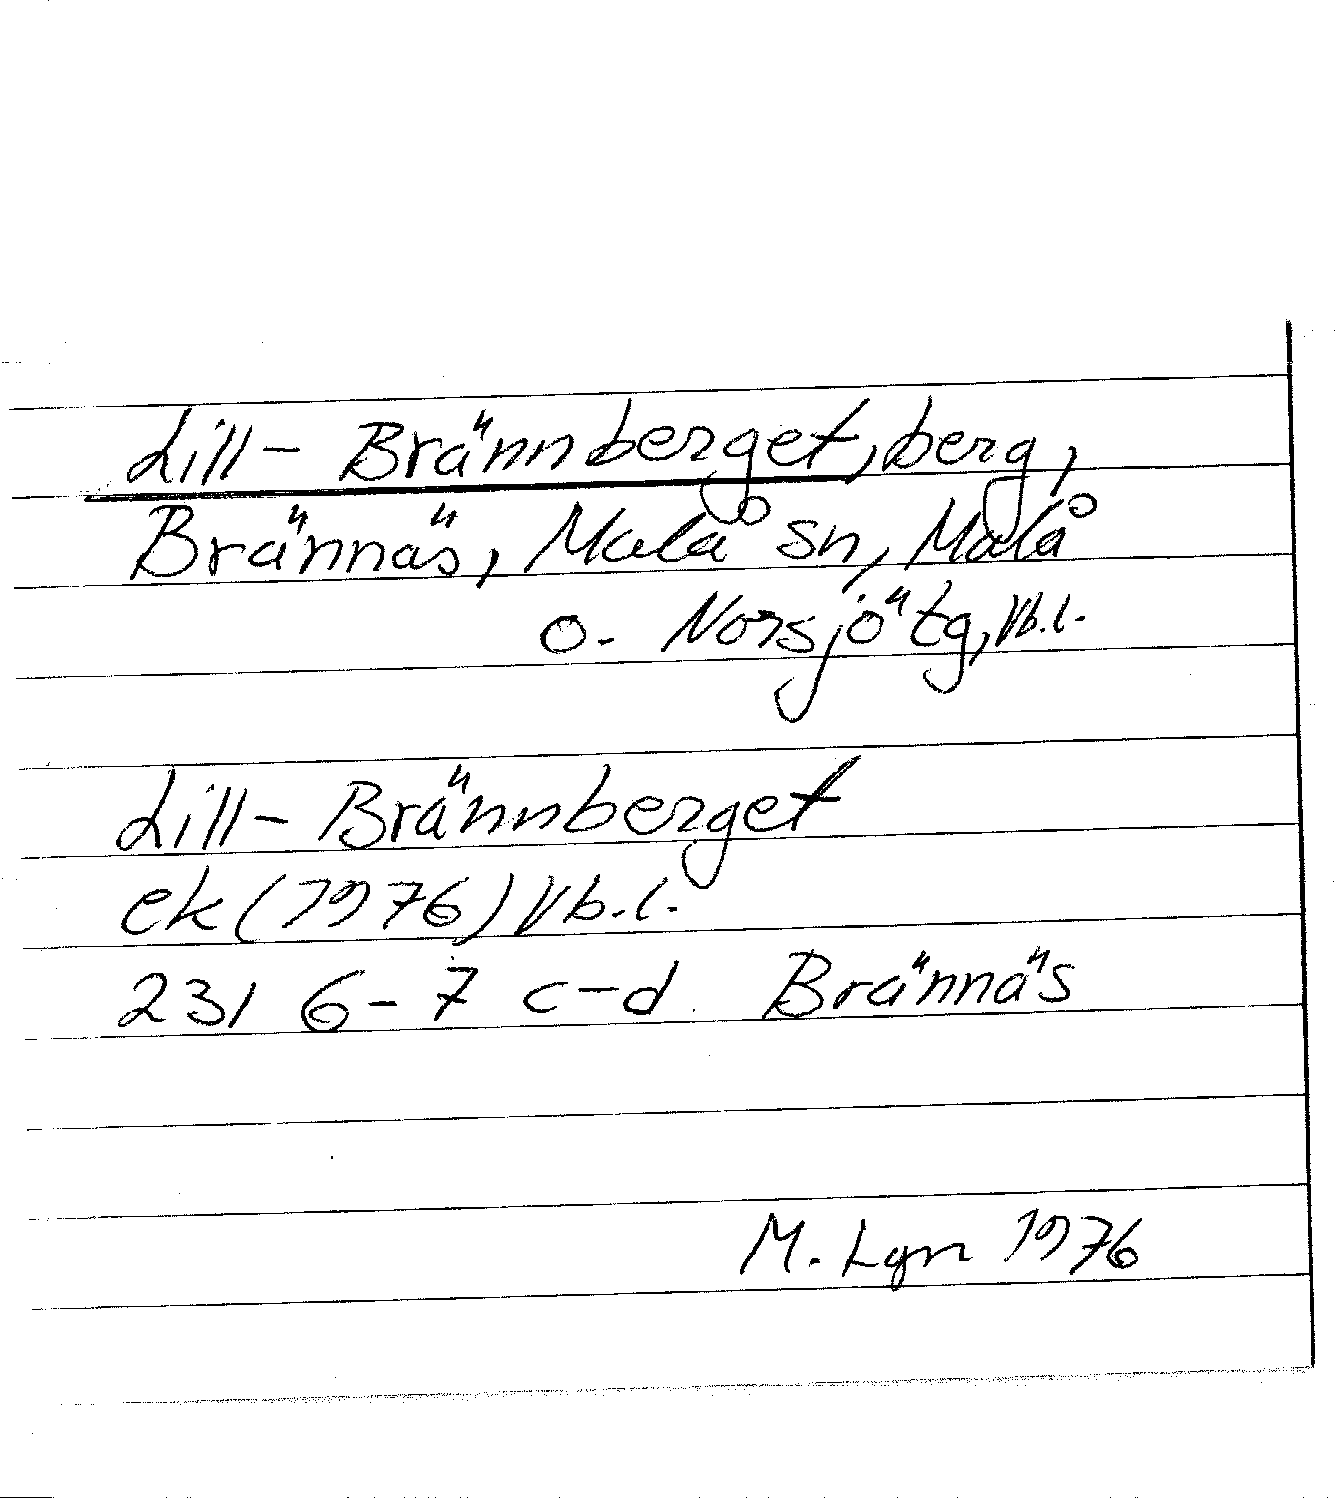 Lill-Brännberget, berg,
Brännäs, Malå sn, Malå
o. Norsjö tg, Vb.l.
Lill-Brännberget
ek (1976) Vb.l.
23I 6-7 c-d Brännäs
M. Lgn 1976